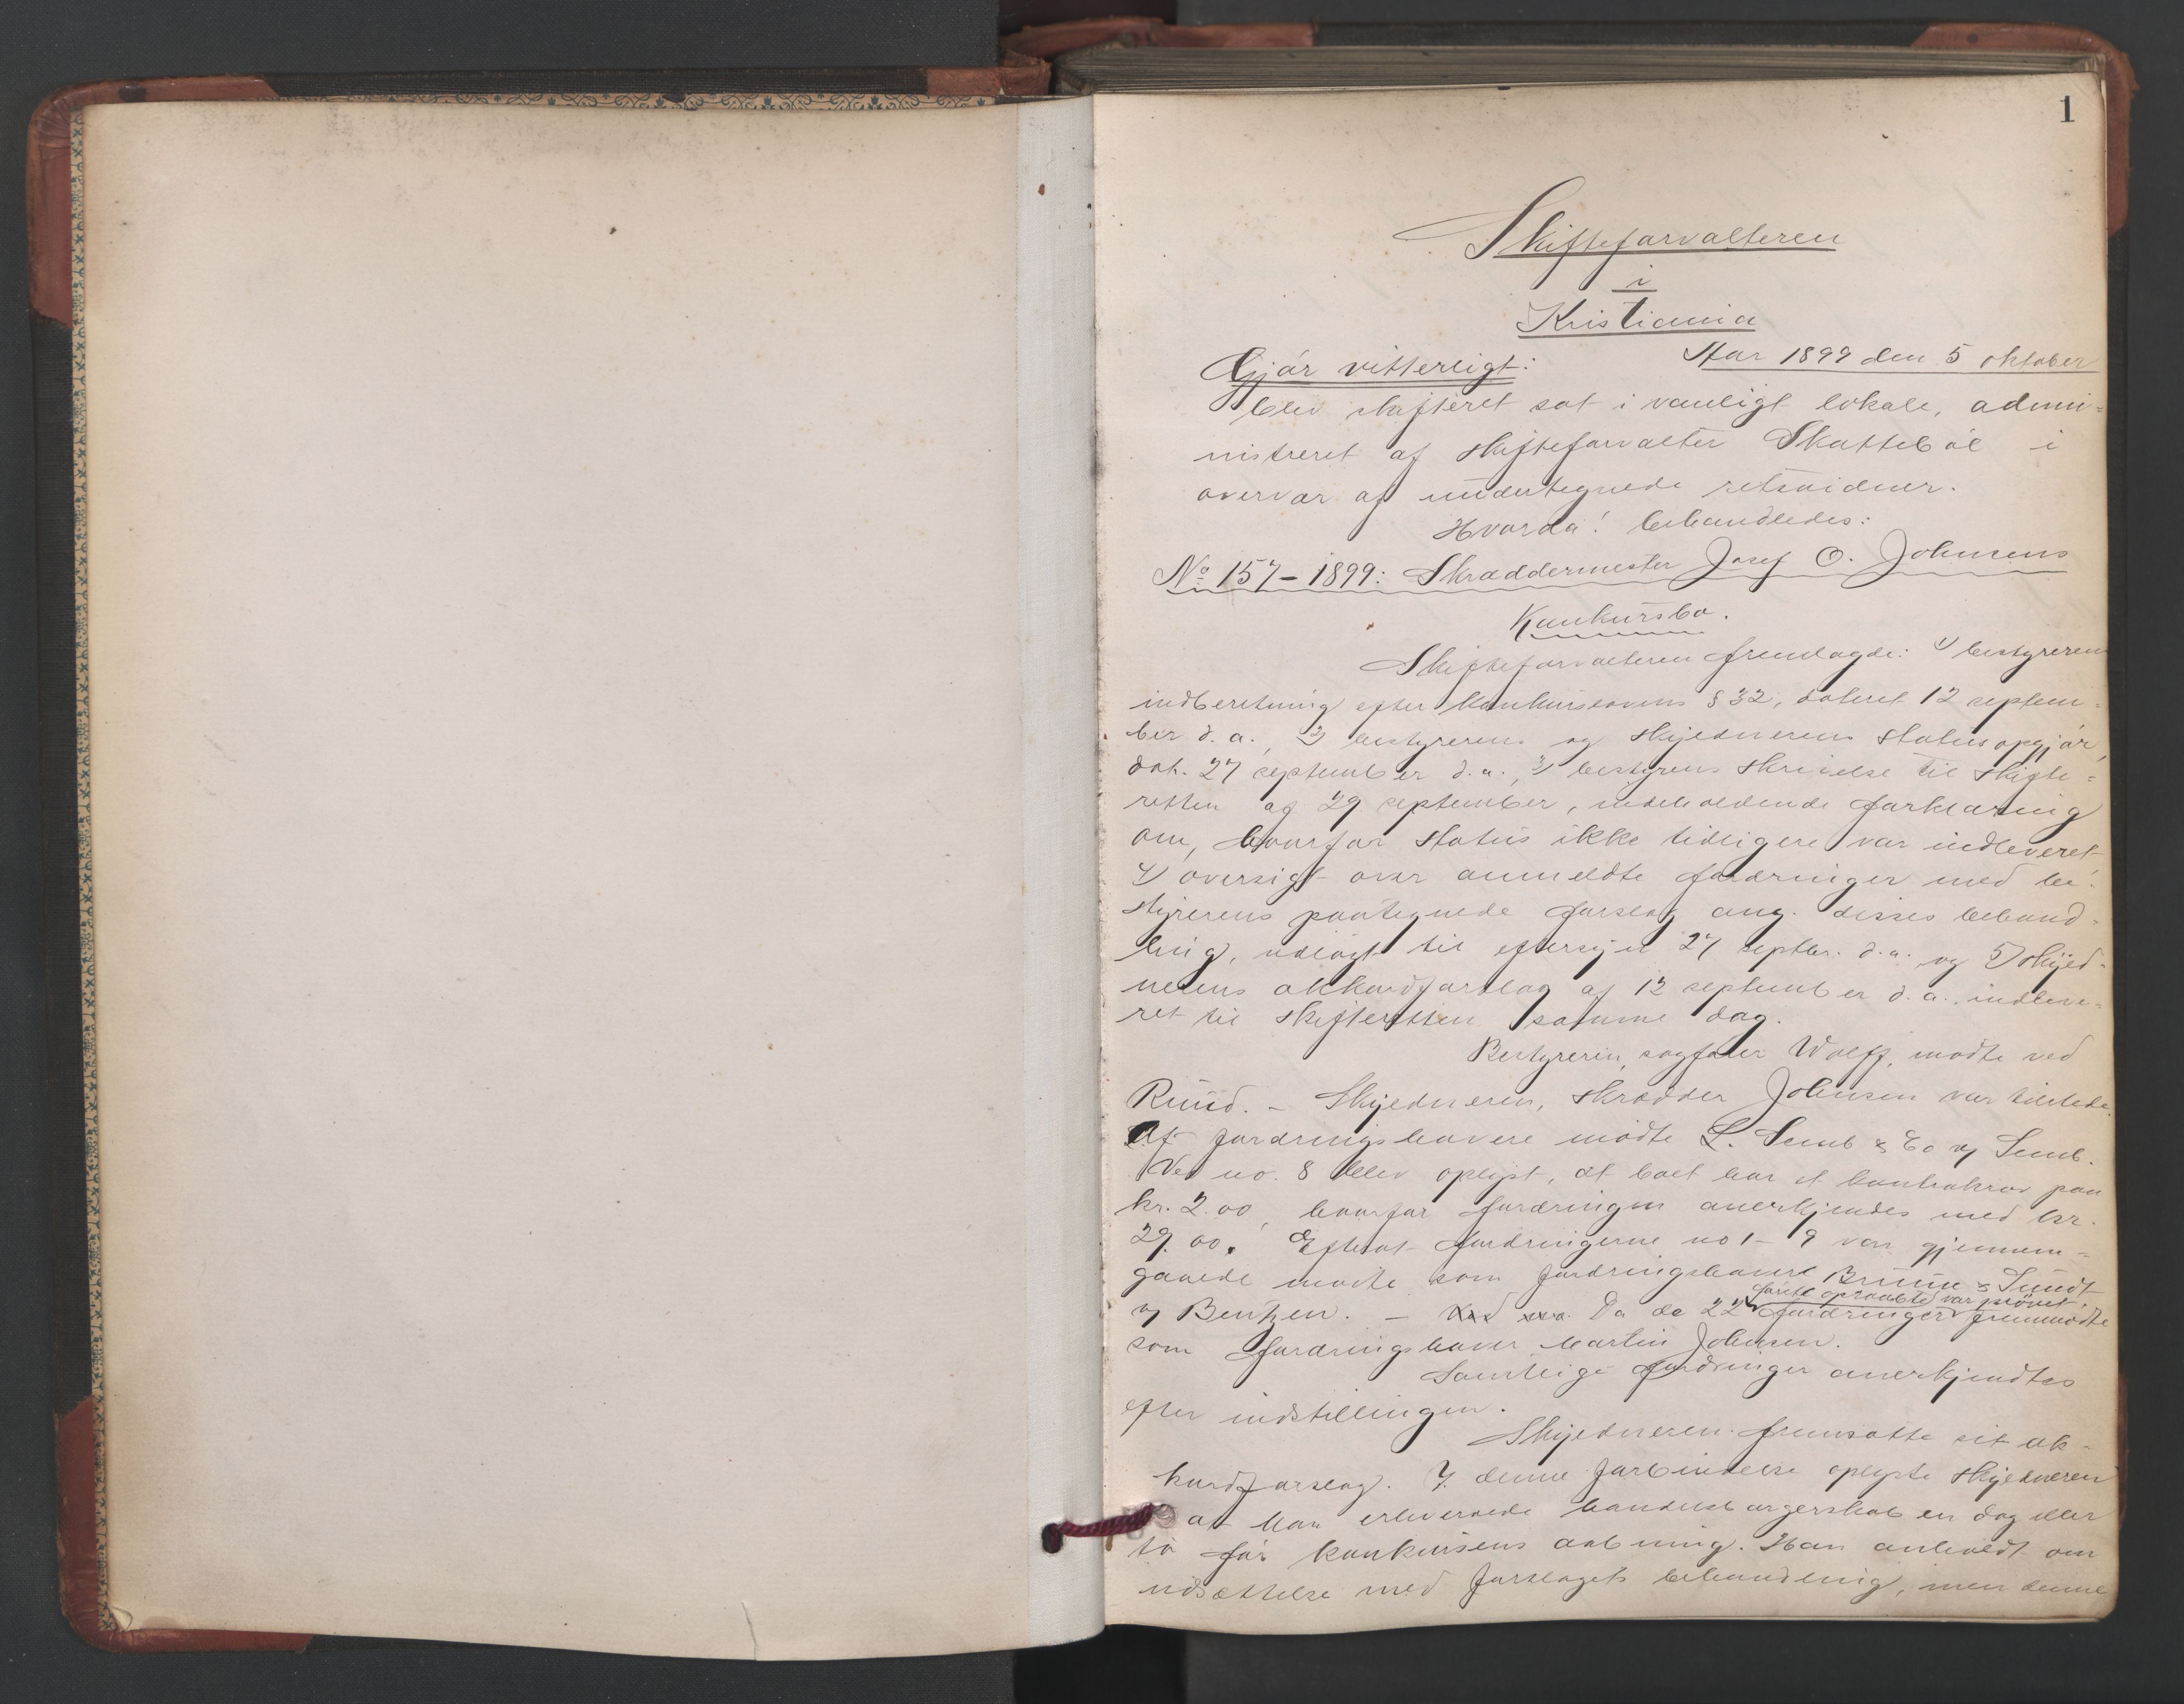 1
Skifteforvalteren
i
Kristiania
Gjör vitterligt:
Aar 1899 den 5 oktober
blev skifteret sat i vanligt lokale, admi-
nistreret af skifteforvalter Skattebøl i
overvær af undertegnede retsvidner.
Hvorda! behandledes:
No 157 - 1899: Skræddermester Josef O. Johnsens
Konkursbo.
Skifteforvalteren fremlagde: 1) bestyrerens
indberetning efter konkurslovens § 32, dateret 12 septem-
ber d. a., 2) bestyrerens og skyldnerens statusopgjør,
dat. 27 september d. a., 3) bestyrens skrivelse til skifte-
retten af 29 september, indeholdende forklaring
om, hvorfor status ikke tidligere var indleveret
4) oversigt over anmeldte fordringer med be-
styrerens paategnede forslag ang. disses behand-
ling, udlagt til eftersyn 27 septbr. d. a. og 5) skyld-
nerens akkordforslag af 12 september d. a. indleve-
ret til skifteretten samme dag.
Bestyreren, sagfører Wolff, mødte ved
Ruud. - Skyldneren, skrædder Johnsen var tilstede.
Af fordringshavere mødte L. Semb & Co v/ Semb.
Ved no. 8 blev oplyst, at boet har et kontrakrav paa
kr. 2.00, hvorfor fordringen anerkjendes med kr.
29.00. Efterat fordringerne no 1 - 9 var gjennem-
gaaede mødte som fordringshavere Bruun & Sundt
v/ Bentzen. - Da de 22 først opraabte fordringer var prøvet, fremmødte
som fordringshaver Martin Johnsen.
Samtlige fordringer anerkjendtes
efter indstillingen.
Skyldneren fremsatte sit ak-
kordforslag. I denne forbindelse oplyste skyldneren
at han erhvervede handelsborgerskab en dag eller
to før konkursens aabning. Han anholdt om
udsættelse med forslagets behandling, men denne